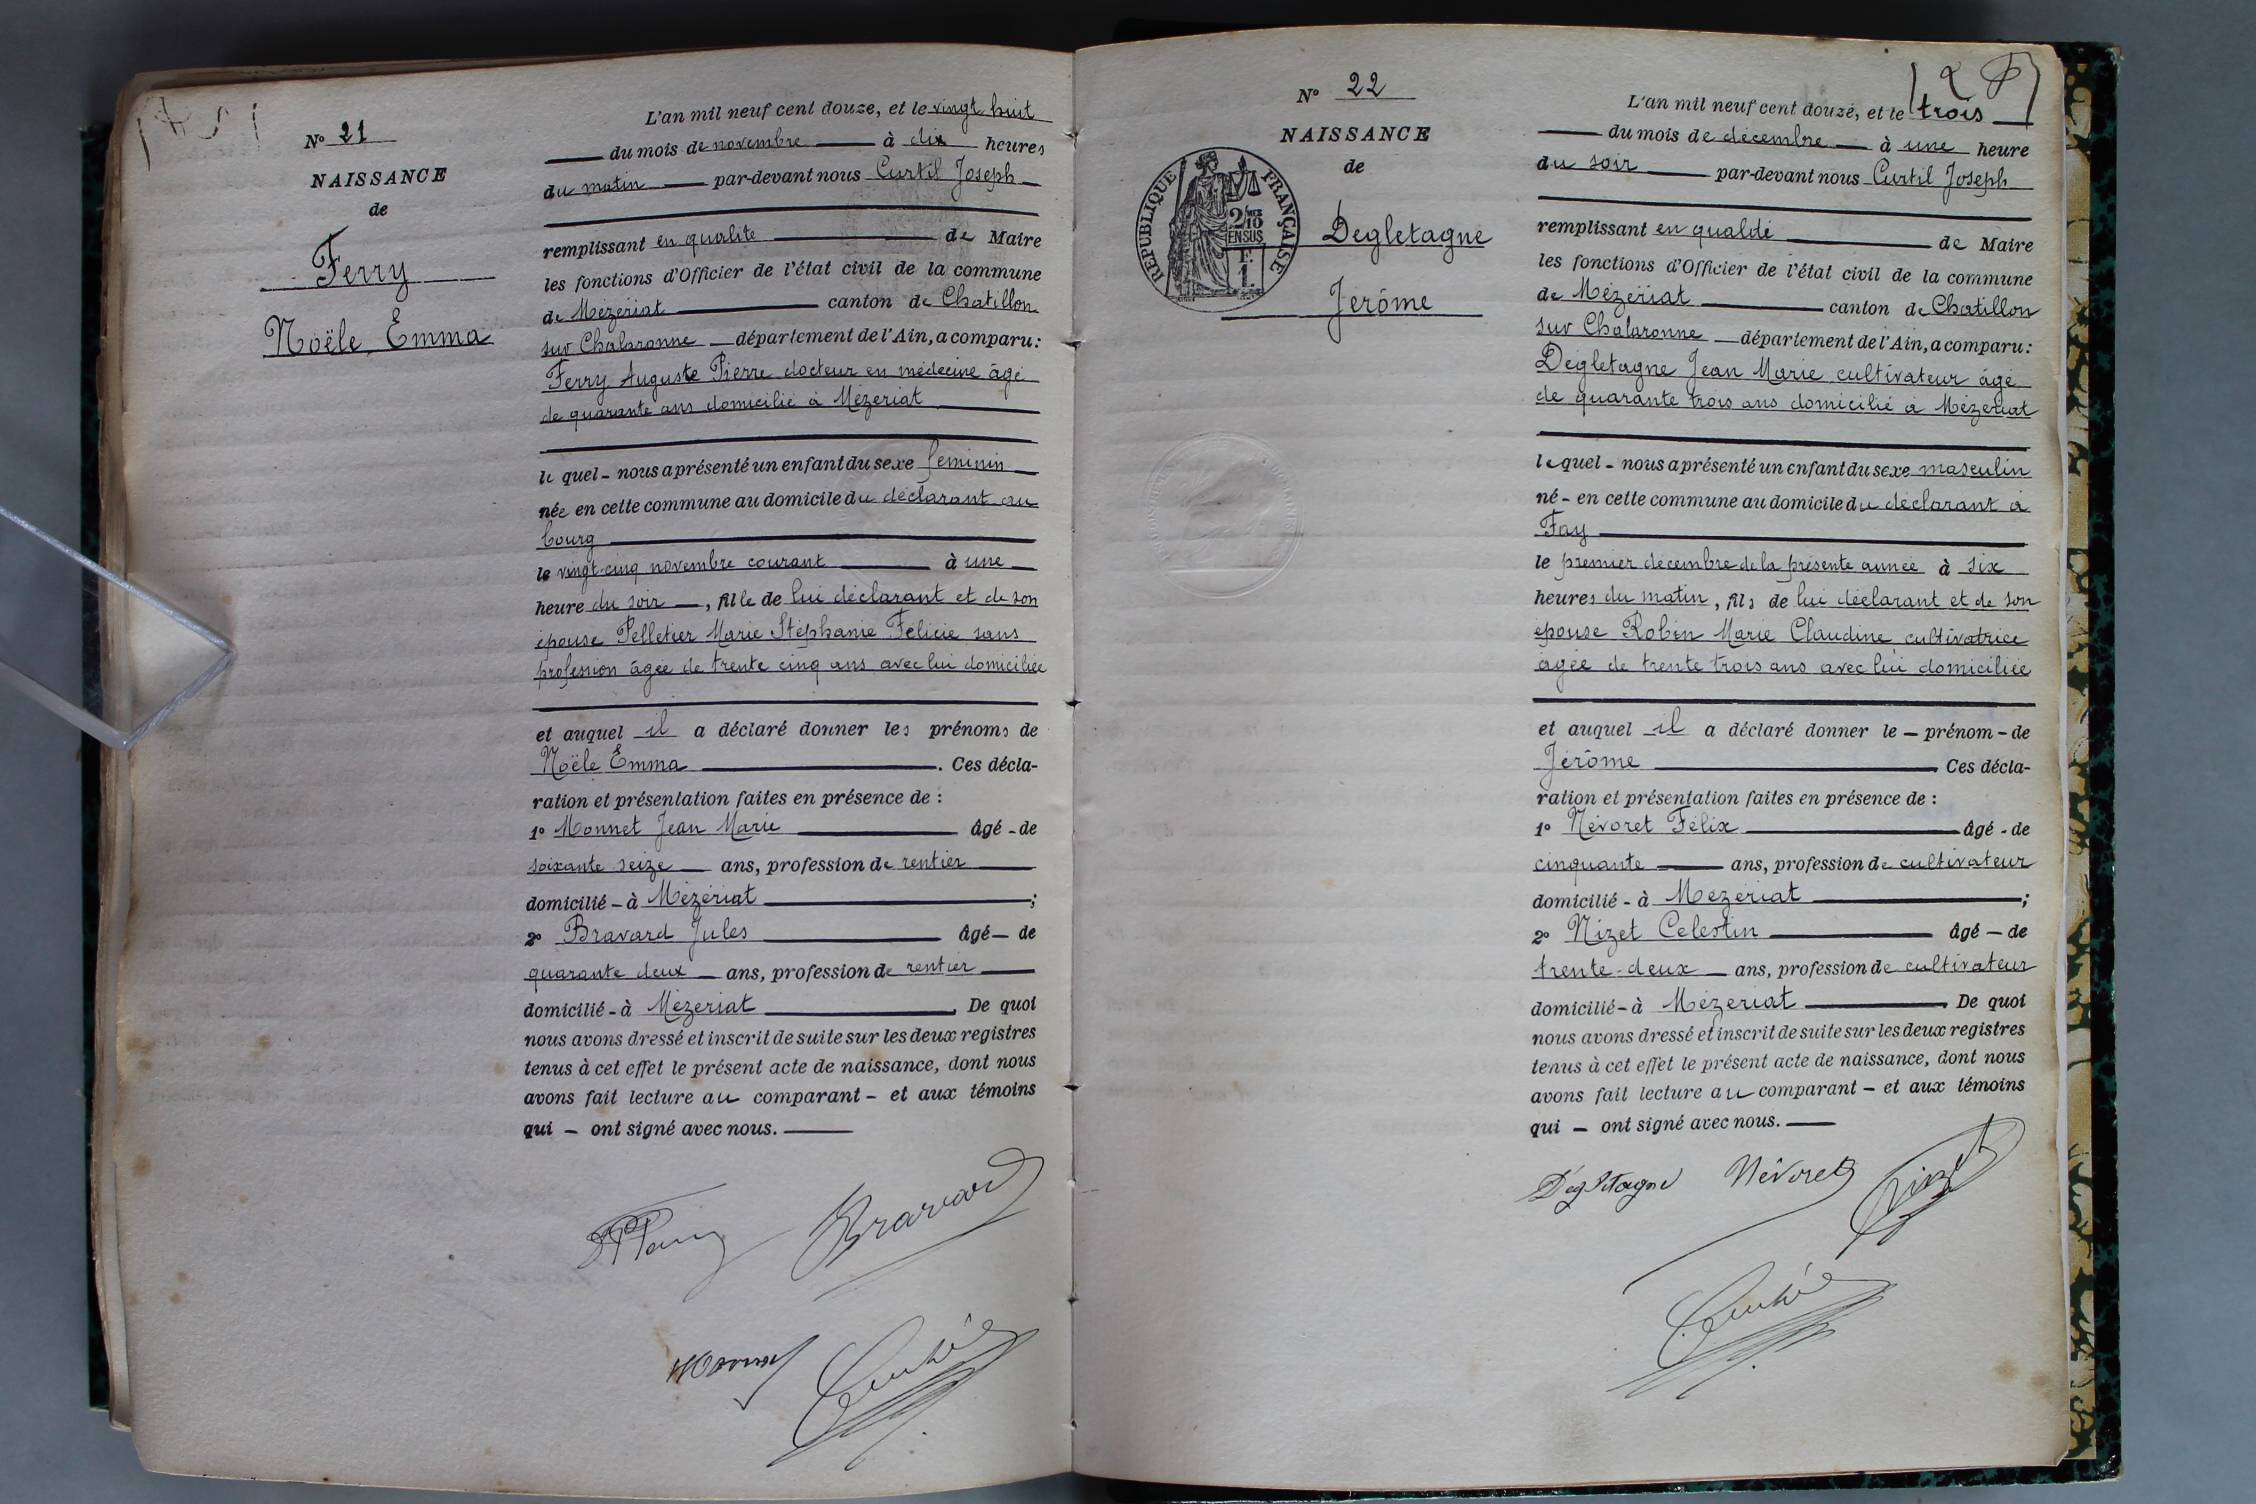 N° 21
NAISSANCE
de
Ferry
Noële Emma
L'an mil neuf cent douze, et le vingt huit
du mois de novembre à dix heures
du matin par-devant nous Curtil Joseph
remplissant en qualité de Maire
les fonctions d'Officier de l'état civil de la commune
de Mézériat canton de Chatillon
sur Chalaronne département de l'Ain, a comparu:
Ferry Auguste Pierre docteur en médecine âgé
de quarante ans domicilié à Mézériat
le quel - nous a présenté un enfant du sexe feminin
née en cette commune au domicile du déclarant au
bourg
le vingt-cinq novembre courant à une
heure du soir, fille de lui déclarant et de son
épouse Pelletier Marie Stéphanie Félicie sans
profession âgée de trente cinq ans avec lui domiciliée
et auquel il a déclaré donner les prénoms de
Noële Emma. Ces décla-
ration et présentation faites en présence de :
1° Monnet Jean Marie âgé - de
soixante seize ans, profession de rentier
domicilié - à Mézériat ;
2° Bravard Jules âgé - de
quarante deux ans, profession de rentier
domicilié - à Mézériat. De quoi
nous avons dressé et inscrit de suite sur les deux registres
tenus à cet effet le présent acte de naissance, dont nous
avons fait lecture au comparant - et aux témoins
qui - ont signé avec nous.
Bravard
Monnet
N° 22
NAISSANCE
de
RÉPUBLIQUE FRANÇAISE
2/10
EN SUS
Dégletagne
Jérôme
L'an mil neuf cent douze, et le trois
du mois de décembre à une heure
du soir par-devant nous Curtil Joseph
remplissant en qualité de Maire
les fonctions d'Officier de l'état civil de la commune
de Mézériat canton de Chatillon
sur Chalaronne département de l'Ain, a comparu:
Dégletagne Jean Marie cultivateur âgé
de quarante trois ans domicilié à Mézériat
le quel - nous a présenté un enfant du sexe masculin
né - en cette commune au domicile du déclarant à
Fay
le premier décembre de la présente année à six
heures du matin, fils de lui déclarant et de son
épouse Robin Marie Claudine cultivatrice
âgée de trente trois ans avec lui domiciliée
et auquel il a déclaré donner le - prénom - de
Jérôme. Ces décla-
ration et présentation faites en présence de :
1° Névoret Félix âgé - de
cinquante ans, profession de cultivateur
domicilié - à Mézériat ;
2° Nizet Célestin âgé - de
trente-deux ans, profession de cultivateur
domicilié - à Mézériat. De quoi
nous avons dressé et inscrit de suite sur les deux registres
tenus à cet effet le présent acte de naissance, dont nous
avons fait lecture au comparant - et aux témoins
qui - ont signé avec nous.
Dégletagne Névoret Nizet